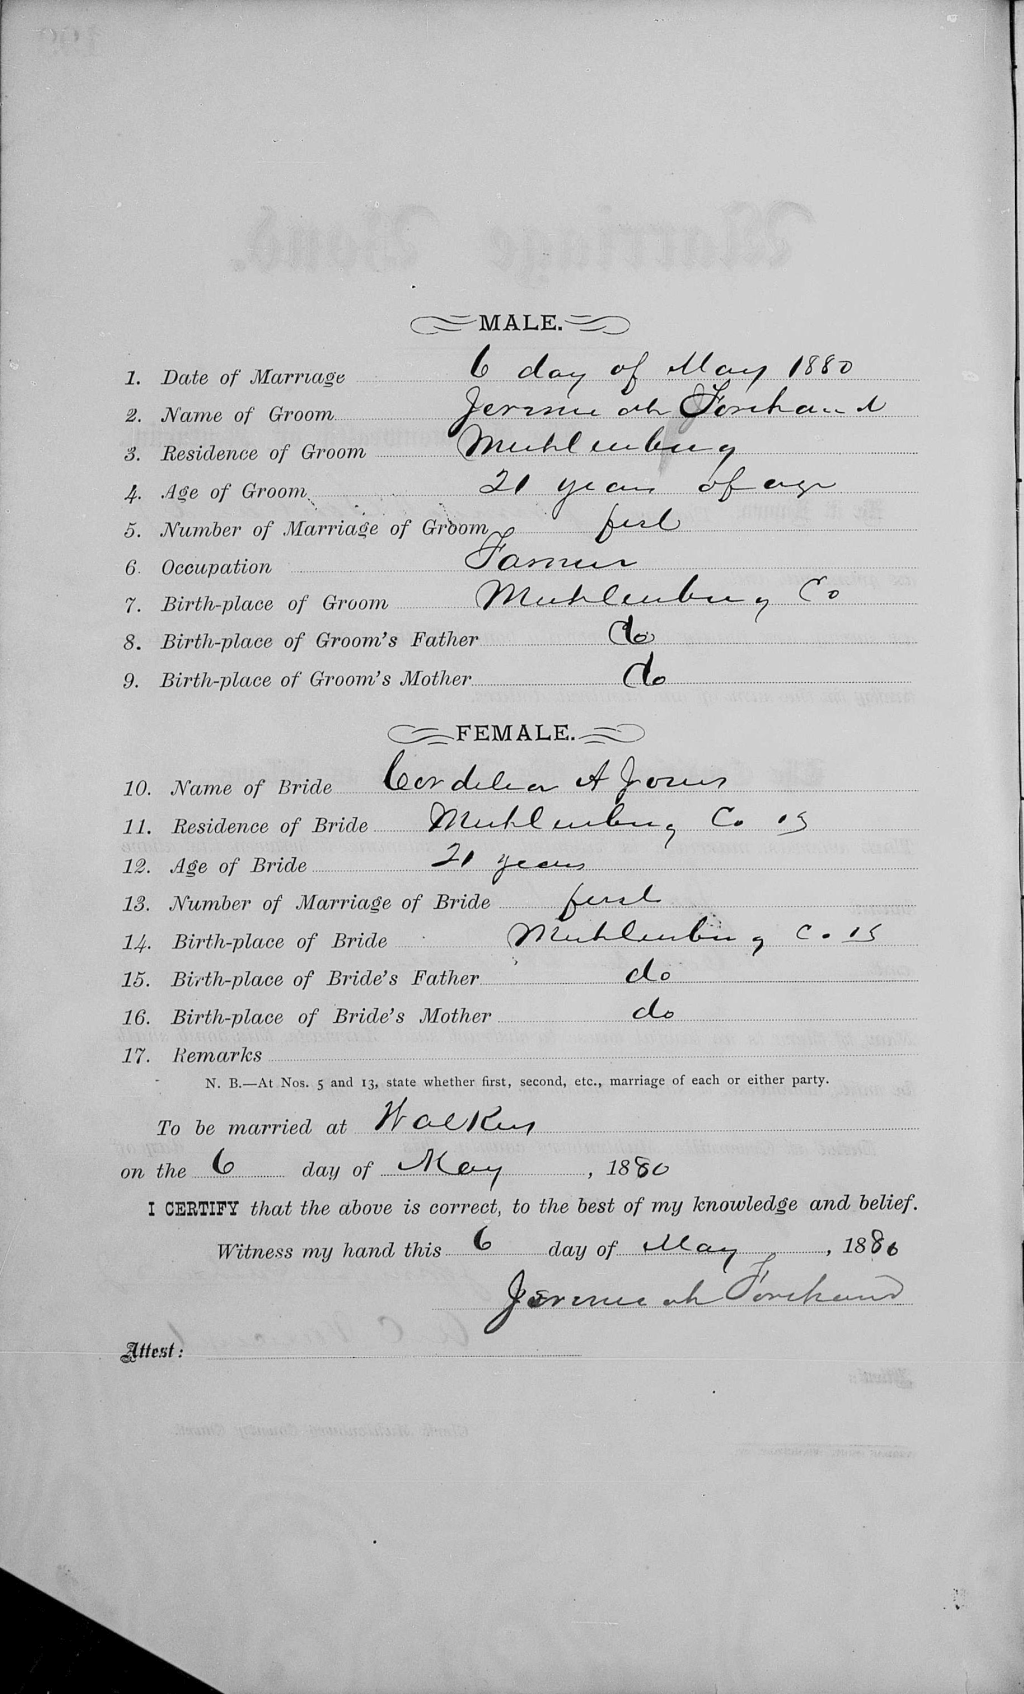 MALE.
1. Date of Marriage 6 day of May 1880
2. Name of Groom Jeremeah Forehand
3. Residence of Groom Muhlenburg
4. Age of Groom 21 years of age
5. Number of Marriage of Groom first
6. Occupation Farmer
7. Birth-place of Groom Muhlenburg Co
8. Birth-place of Groom's Father do
9. Birth-place of Groom's Mother do
FEMALE.
10. Name of Bride Cordelia A Jones
11. Residence of Bride Muhlenburg Co
12. Age of Bride 21 years
13. Number of Marriage of Bride first
14. Birth-place of Bride Muhlenburg Co
15. Birth-place of Bride's Father do
16. Birth-place of Bride's Mother do
17. Remarks
N. B.—At Nos. 5 and 13, state whether first, second, etc., marriage of each or either party.
To be married at
on the 6 day of May, 1880
I CERTIFY that the above is correct, to the best of my knowledge and belief.
Witness my hand this 6 day of May, 1880
Jeremeah Forehand
Attest: